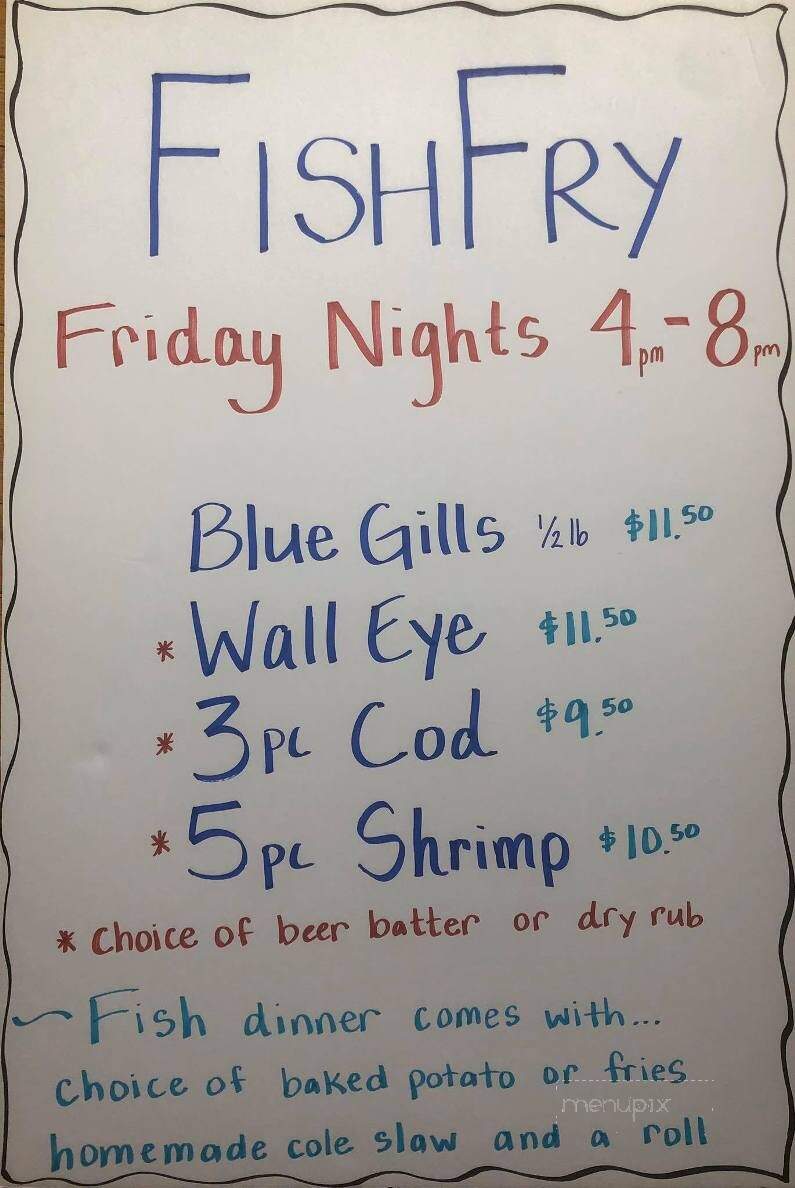 FISHFRY
Friday Nights 4pm-8pm
Blue Gills 1/2 lb $11.50
* Wall Eye $11.50
* 3pc Cod $9.50
* 5pc Shrimp $10.50
* Choice of beer batter or dry rub
~ Fish dinner comes with...
choice of baked potato or fries
menupix
homemade cole slaw and a roll